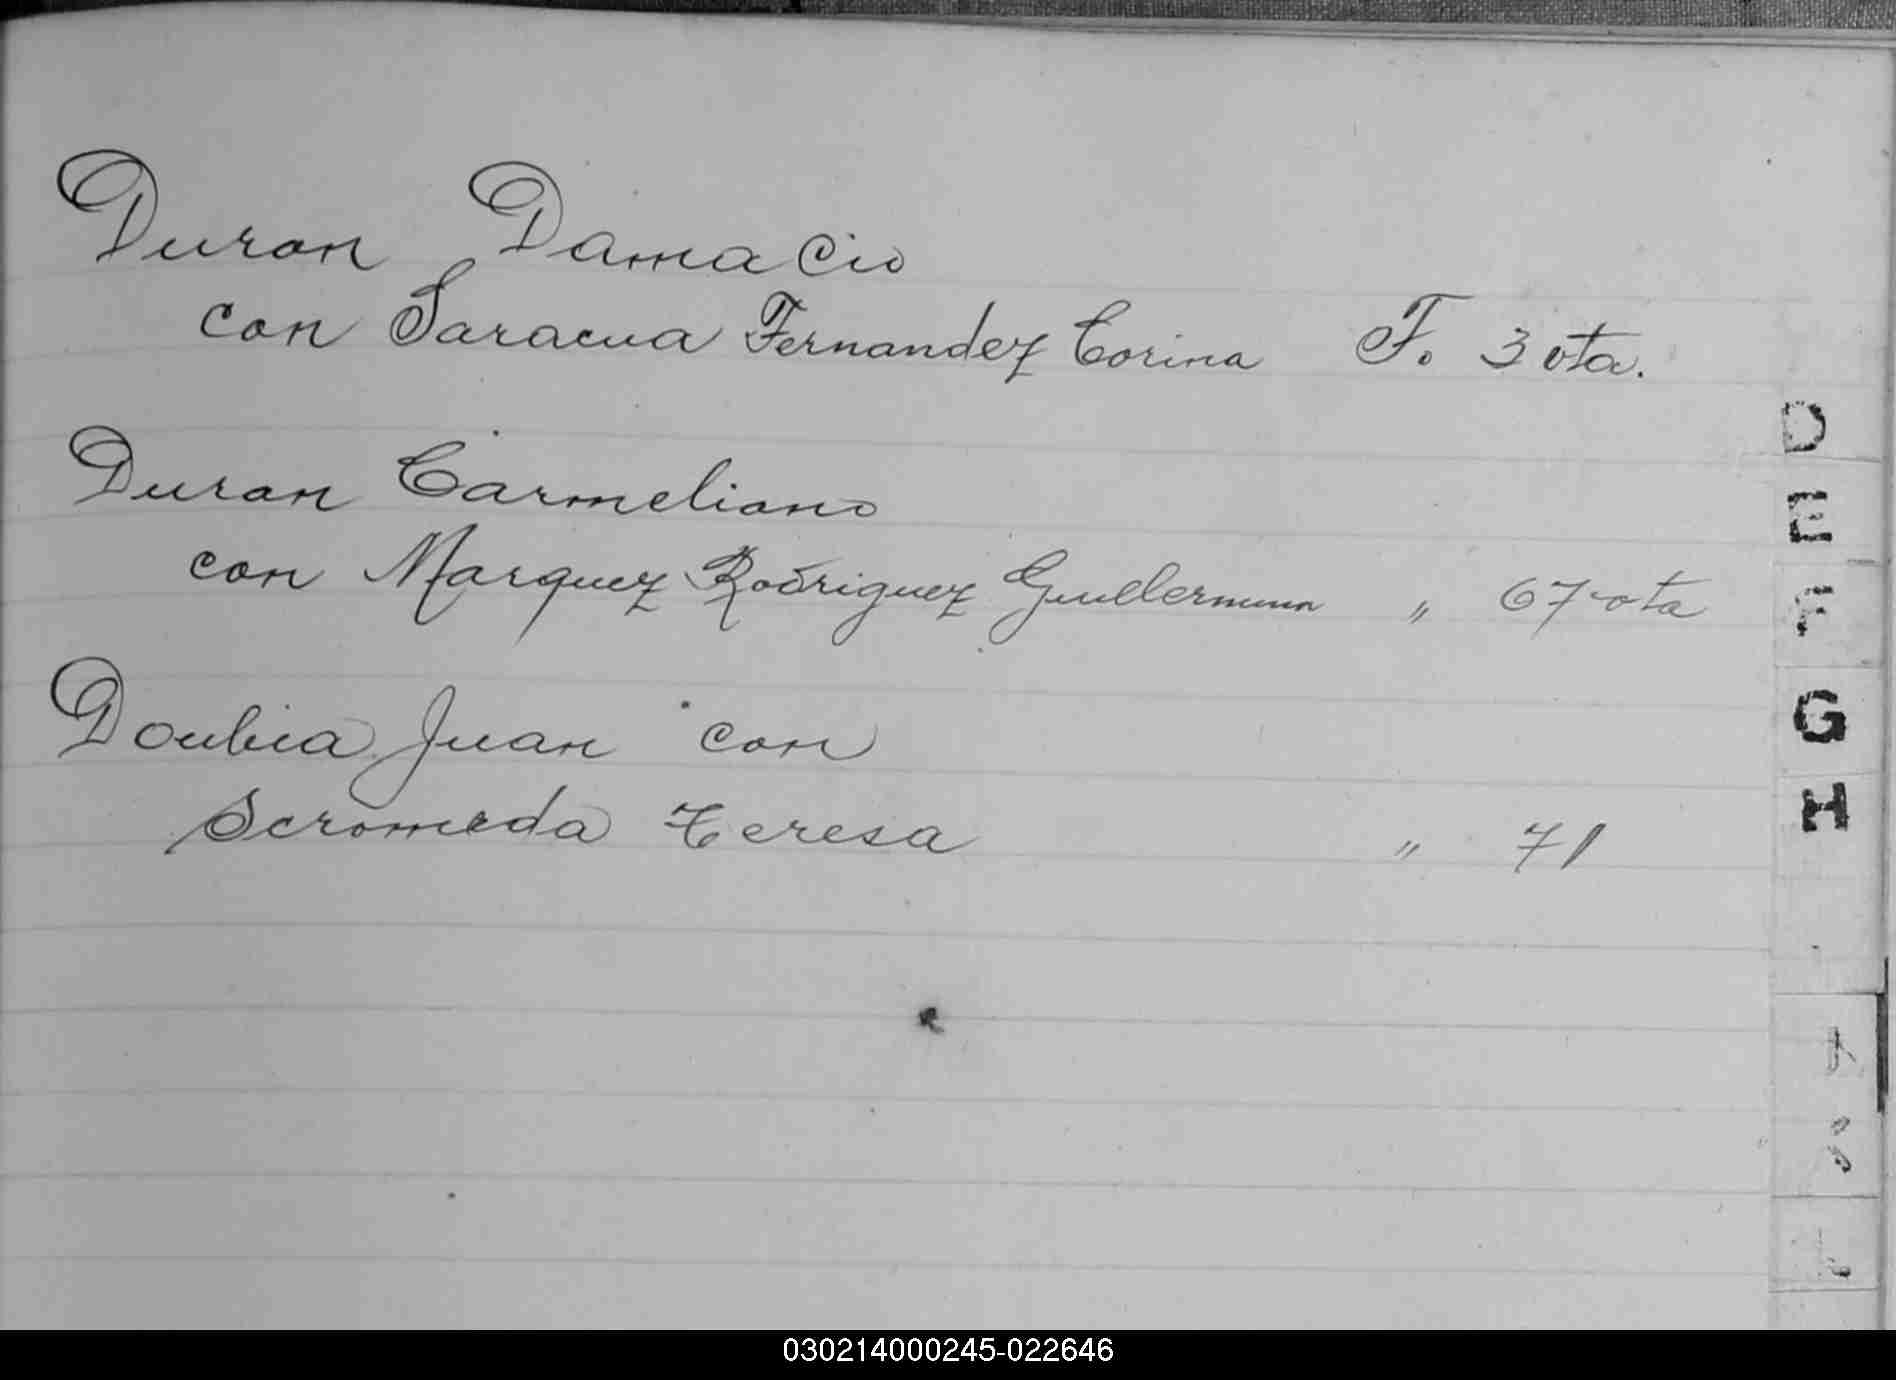 Duran Damacio
con Saracua Fernandez Corina F. 3 vta.
Duran Carmeliano
con Marquez Rodriguez Guillermina " 67 vta
Doubia Juan con
Scromeda Teresa " 71
D
E
F
G
H
030214000245-022646